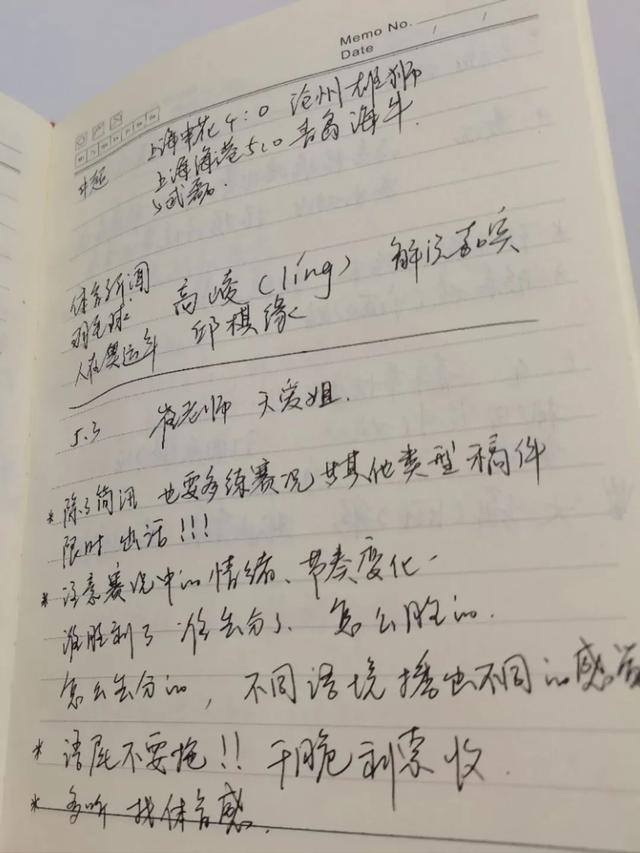 Memo No.
Date
上海申花4:0 沧州雄狮
上海海港5:0青岛海牛
武磊.
体育新闻
羽毛球
人在奥运年
高崚(líng) 解说嘉宾
邱棋缘
5.3 崔老师 天爱姐.
* 除了简讯 也要多练赛况其其他类型稿件
限时出活!!!
* 注意赛况中的情绪、节奏变化-
谁胜利了 谁丢分了、怎么胜的.
怎么丢分的, 不同语境播出不同的感觉
* 语尾不要拖!! 干脆利索收.
* 多听 找体育感.